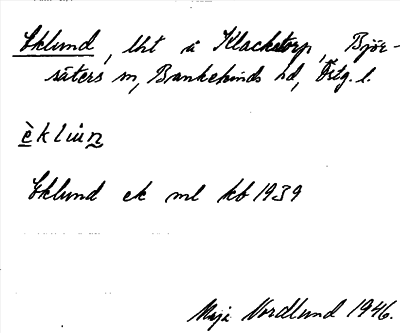 Eklund, lht å Klackstorp, Björ-
säters sn, Bankekinds hd, Östg. l.
èklùn
Eklund ek ml kb 1939
Maja Nordlund 1946.